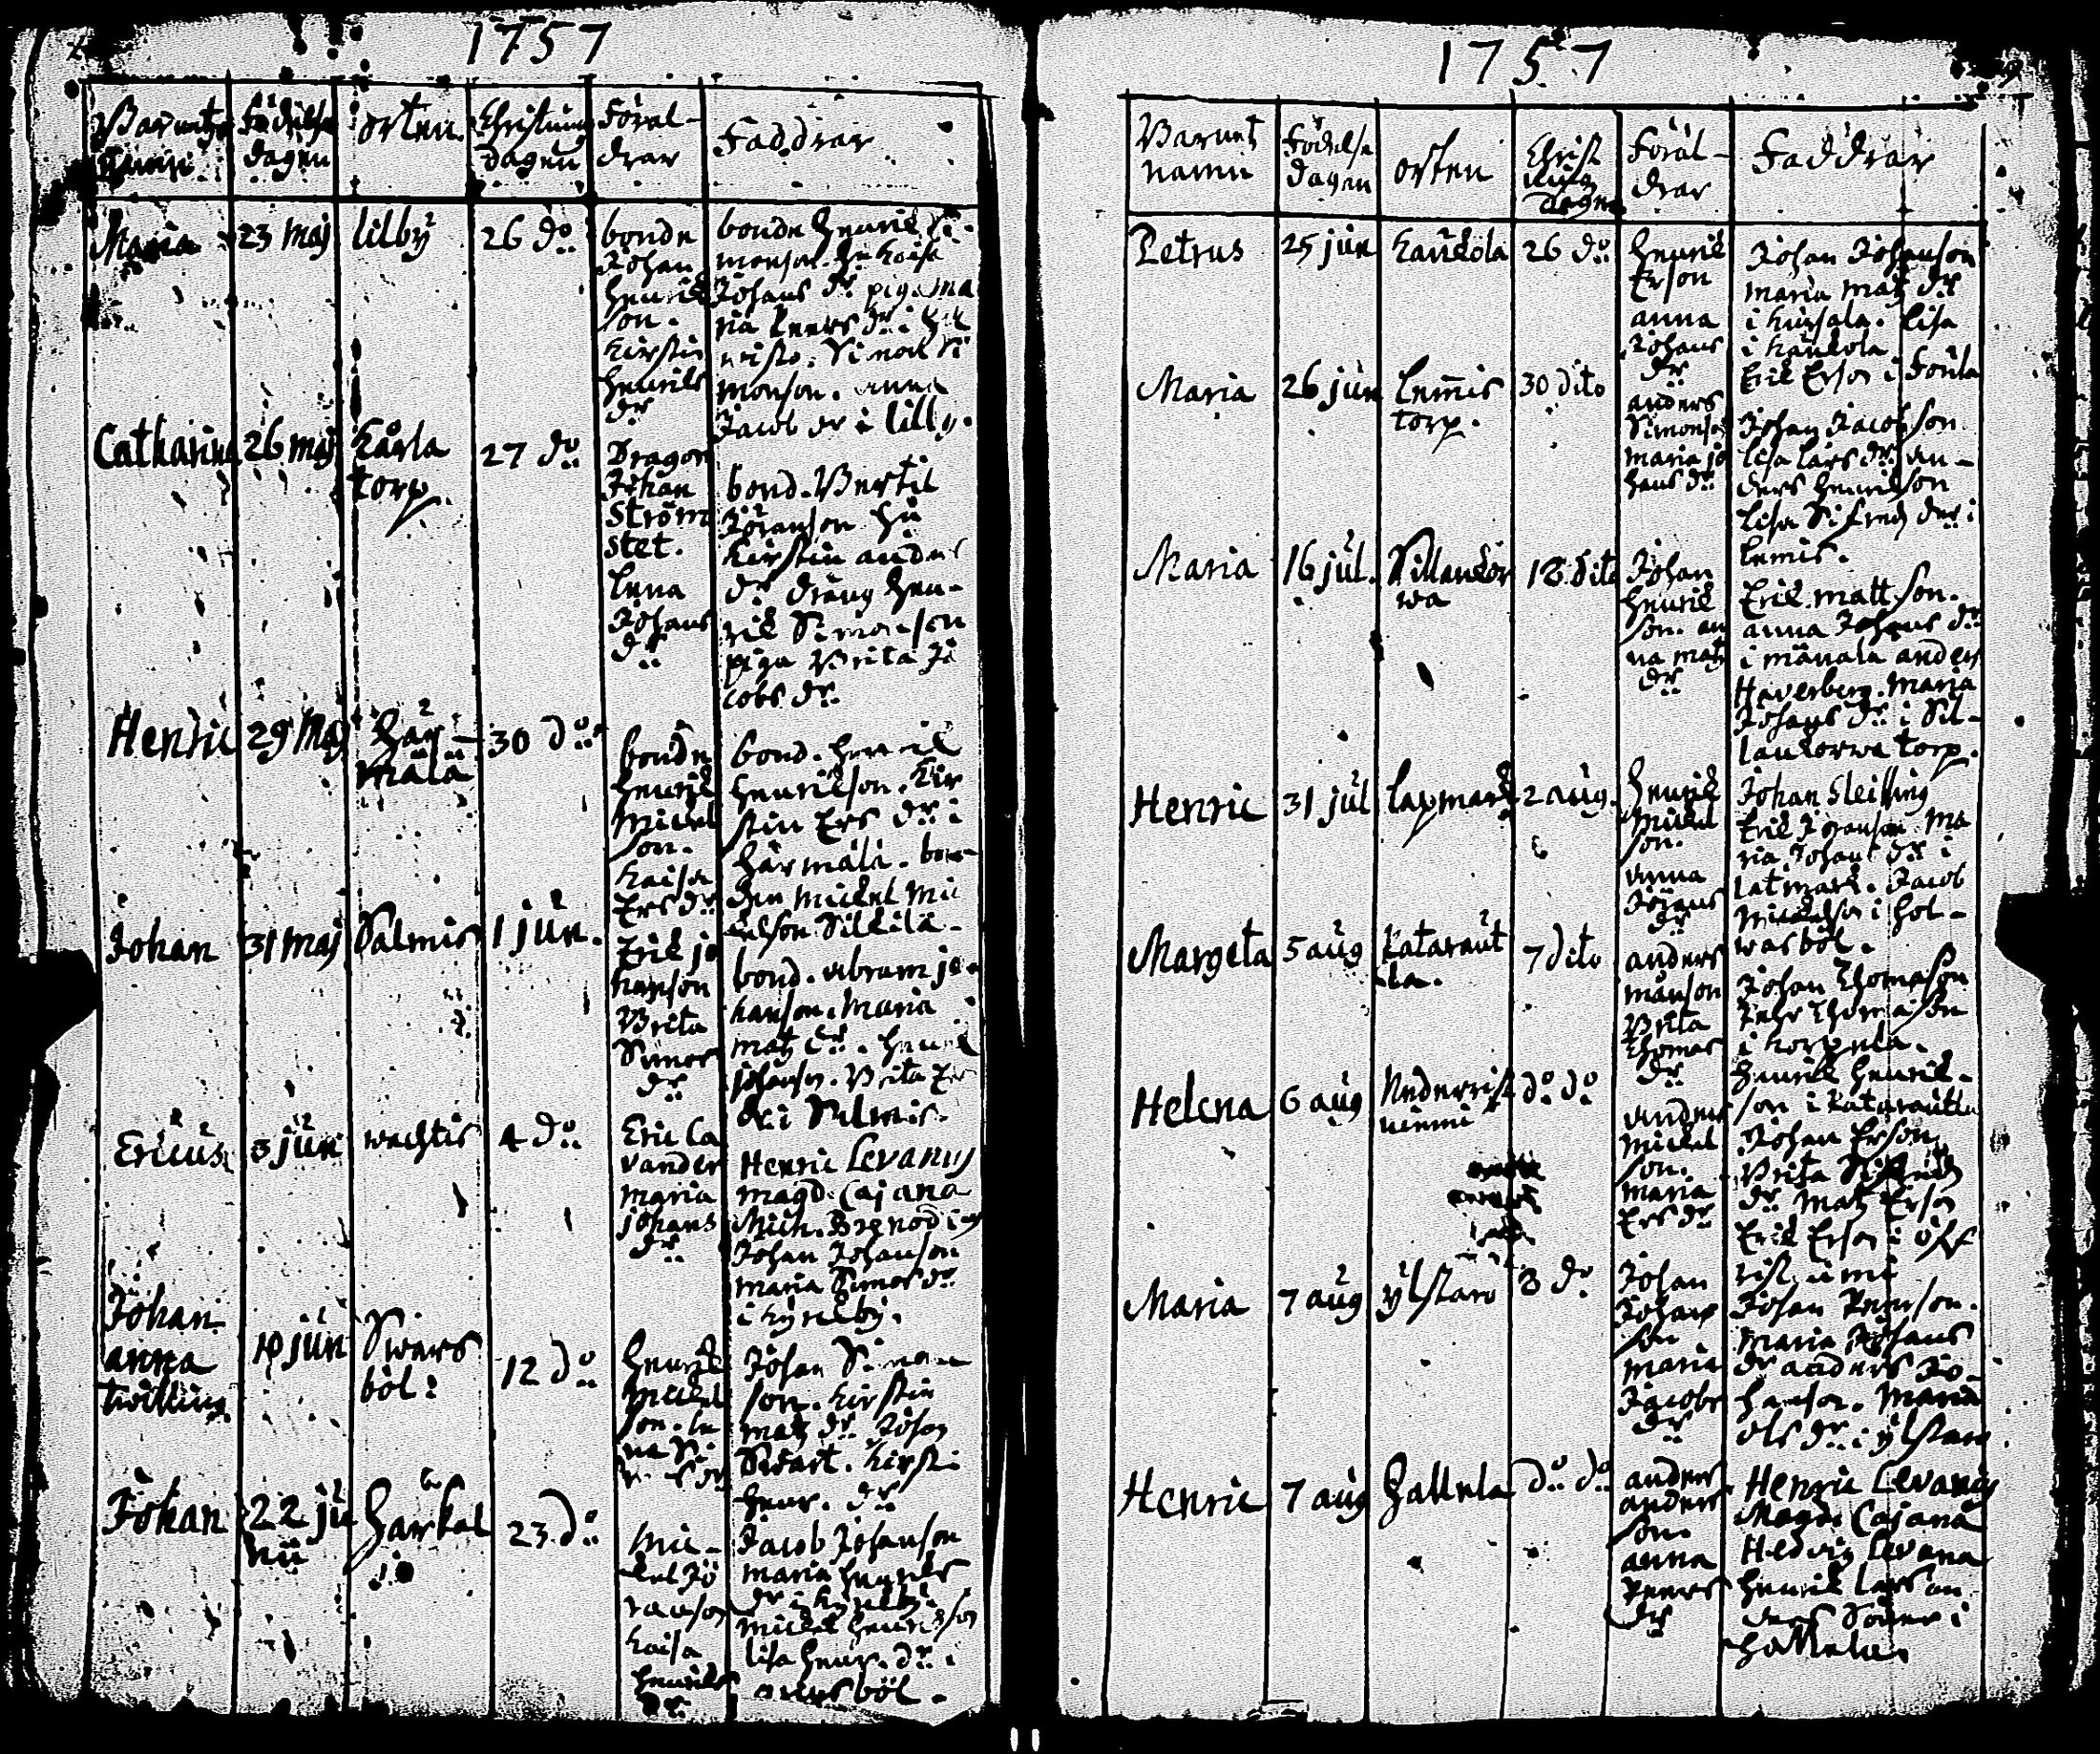 1757
Barnets namn
Födelse dagen
orten
Christnings dagen
Föräl- drar
Faddrar
Maria
23 maj
lilby
26 do
bonde
Johan
Henrik
son.
Kirstin
Henriks
dr
bonde Henrik Si-
monson. hu Kaisa
Johans dr piga Ma
ria Peers dr i
Simon Si
monson. Anna
Jacob dr i lilby.
Catharina
26 maj
Kårla
torp.
27 do
Dragon
Johan
Ström
stet.
Lena
Johans
dr
bond. Bertil
Jöranson hu
Kirstin anders
dr dräng Hen-
rik Simonson
piga Brita Ja
cobs dr.
Henric
29 Maj
Här
mälä
30 do
bonde
Henrik
Mickel
son.
Kaisa
Ers dr
bond. Henrik
Henrikson. Kir
stin Ers dr i
Härmälä. bon-
den Mickel Mic
kelson Sillilä.
Johan
31 maj
Salmis
1 jun.
Erik jo
hanson
Brita
Simos
dr
bond. Abram jo-
hanson. Maria
matz dr. Henrik
johanson. Brita Ers
dr i Salmis.
Ericus
3 jun
wachtis
4 do
Eric Ca
vander
maria
johans
dr
Henric Levanus
magd. Cajana
Mich. Brenodius
Johan Johanson
maria Simos dr
i Kyrckby.
Johan
anna
twilling
10 jun
Swars
böl:
12 do
Henrik
Mickel
son. Le
na Si-
Johan Simon
son. Kirstin
matz dr. Johan
Swart. Kirsti
Henr. dr
Johan
22 ju
nii
Harkal
23 do
Mic-
kel Jö
ranson
Kaisa
Henriks
dr
Jacob Johanson
maria Henriks
dr i Kyrckby.
Mickel Henrikson
lisa Henr. dr i
böl.
1757
Barnet
namn
Födelse
dagen
orten
Christ
nings
dagen
Föräl-
drar
Faddrar
Petrus
25 jun
Kaukola
26 do
Henrik
Erson
anna
Johans
dr
Johan Johanson
maria matz dr
i Kirsala. Lisa
i Kaukola
Erik Erson i
Maria
26 jun
Lemis
torp.
30 dito
anders
Simonson
maria jo
hans dr
Johan Jacobson
lisa Lars dr. An-
ders Henrikson
Lisa Sifreds dr i
Lemis.
Maria
16 jul.
Sillankor
wa
18 dito
Johan
Henrik
son. an
na matz
dr
Erik matt son.
anna Johans dr
i mänala anders
Haverberg. Maria
Johans dr i Sil-
lankorwa torp.
Henric
31 jul
Lapmark
2 aug.
Henrik
Mickel
son.
Anna
Jörans
dr
Johan Sleissing
Erik Joranson Ma
ria Johans dr i
Latmark. Jacob
Mickelson i Hol-
wasböl.
Margeta
5 aug
Kataraut
ta.
7 dito
anders
månson
Brita
Thomas
dr
Johan Thomason
Pehr Thomason
i Korpela.
Henrik Henrik-
son i Katarautta
Helena
6 aug
Nederrist
niemi
do do
Anders
Mickel
son.
maria
Ers dr
Johan Erson
Brita Sifreds
dr matz Erson
Erik Erson i Öfr
ristniemi
Maria
7 aug
ylstaro
8 do
Johan
Johans
son
maria
Jacobs
dr
Johan Peerson.
Maria Johans
dr anders Jo-
hanson. Maria
ols dr i ylstaro
Henric
7 aug
Hallela
do do
anders
anders
son.
anna
Peers
dr
Henric Levanus
Magd. Cajana
Hedvig Levana
Henrik Lars an
ders Söner i
Hallela.